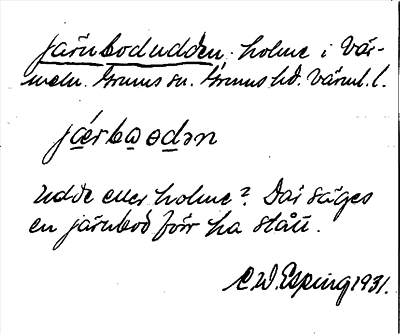 Järnbodudden. holme i Vär-
meln. Grums sn. Grums hd. Värml. l.
jǽrbɷɵdən
Udde eller holme? Där säges
en järnbod förr ha stått.
C. W. Esping 1931.